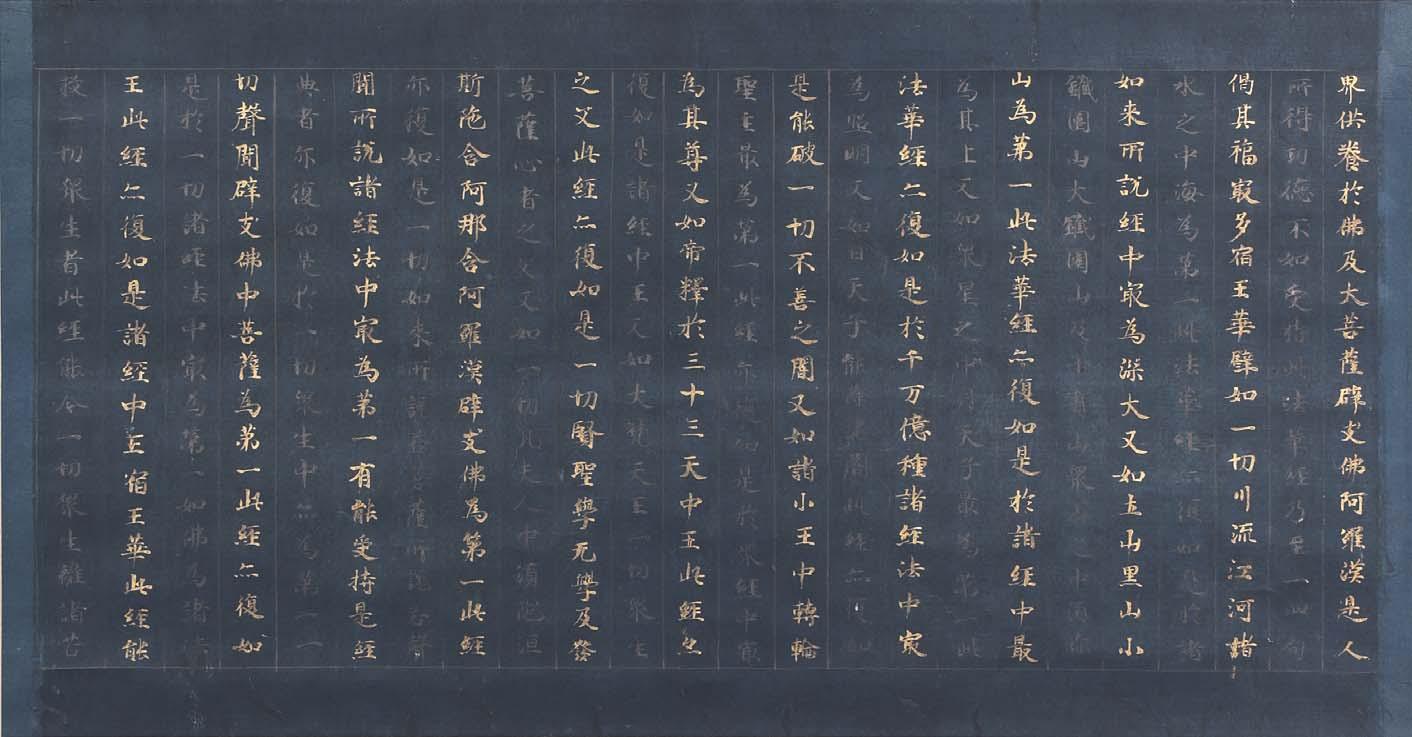 界供養於佛及大菩薩辟支佛阿羅漢是人
所得功德不如受持此法華經乃至一四句
偈其福㝡多宿王華譬如一切川流江河諸
水之中海為第一此法華經亦復如是於諸
如來所說經中㝡為深大又如土山黑山小
鐵圍山大鐵圍山及十寶山眾山之中須弥
山為第一此法華經亦復如是於諸經中最
為其上又如眾星之中月天子最為第一此
法華經亦復如是於千万億種諸經法中㝡
為照明又如日天子能除諸闇此經亦復如
是能破一切不善之闇又如諸小王中轉輪
聖王最為第一此經亦復如是於眾經中㝡
為其尊又如帝釋於三十三天中王此經亦
復如是諸經中王又如大梵天王一切眾生
之父此經亦復如是一切賢聖學无學及發
菩薩心者之父又如一切凡夫人中須陁洹
斯陁含阿那含阿羅漢辟支佛為第一此經
亦復如是一切如來所說若菩薩所說若聲
聞所說諸經法中㝡為第一有能受持是經
典者亦復如是於一切眾生中亦為第一一
切聲聞辟支佛中菩薩為第一此經亦復如
是於一切諸經法中㝡為第一如佛為諸法
王此經亦復如是諸經中王宿王華此經能
救一切眾生者此經能令一切眾生離諸苦